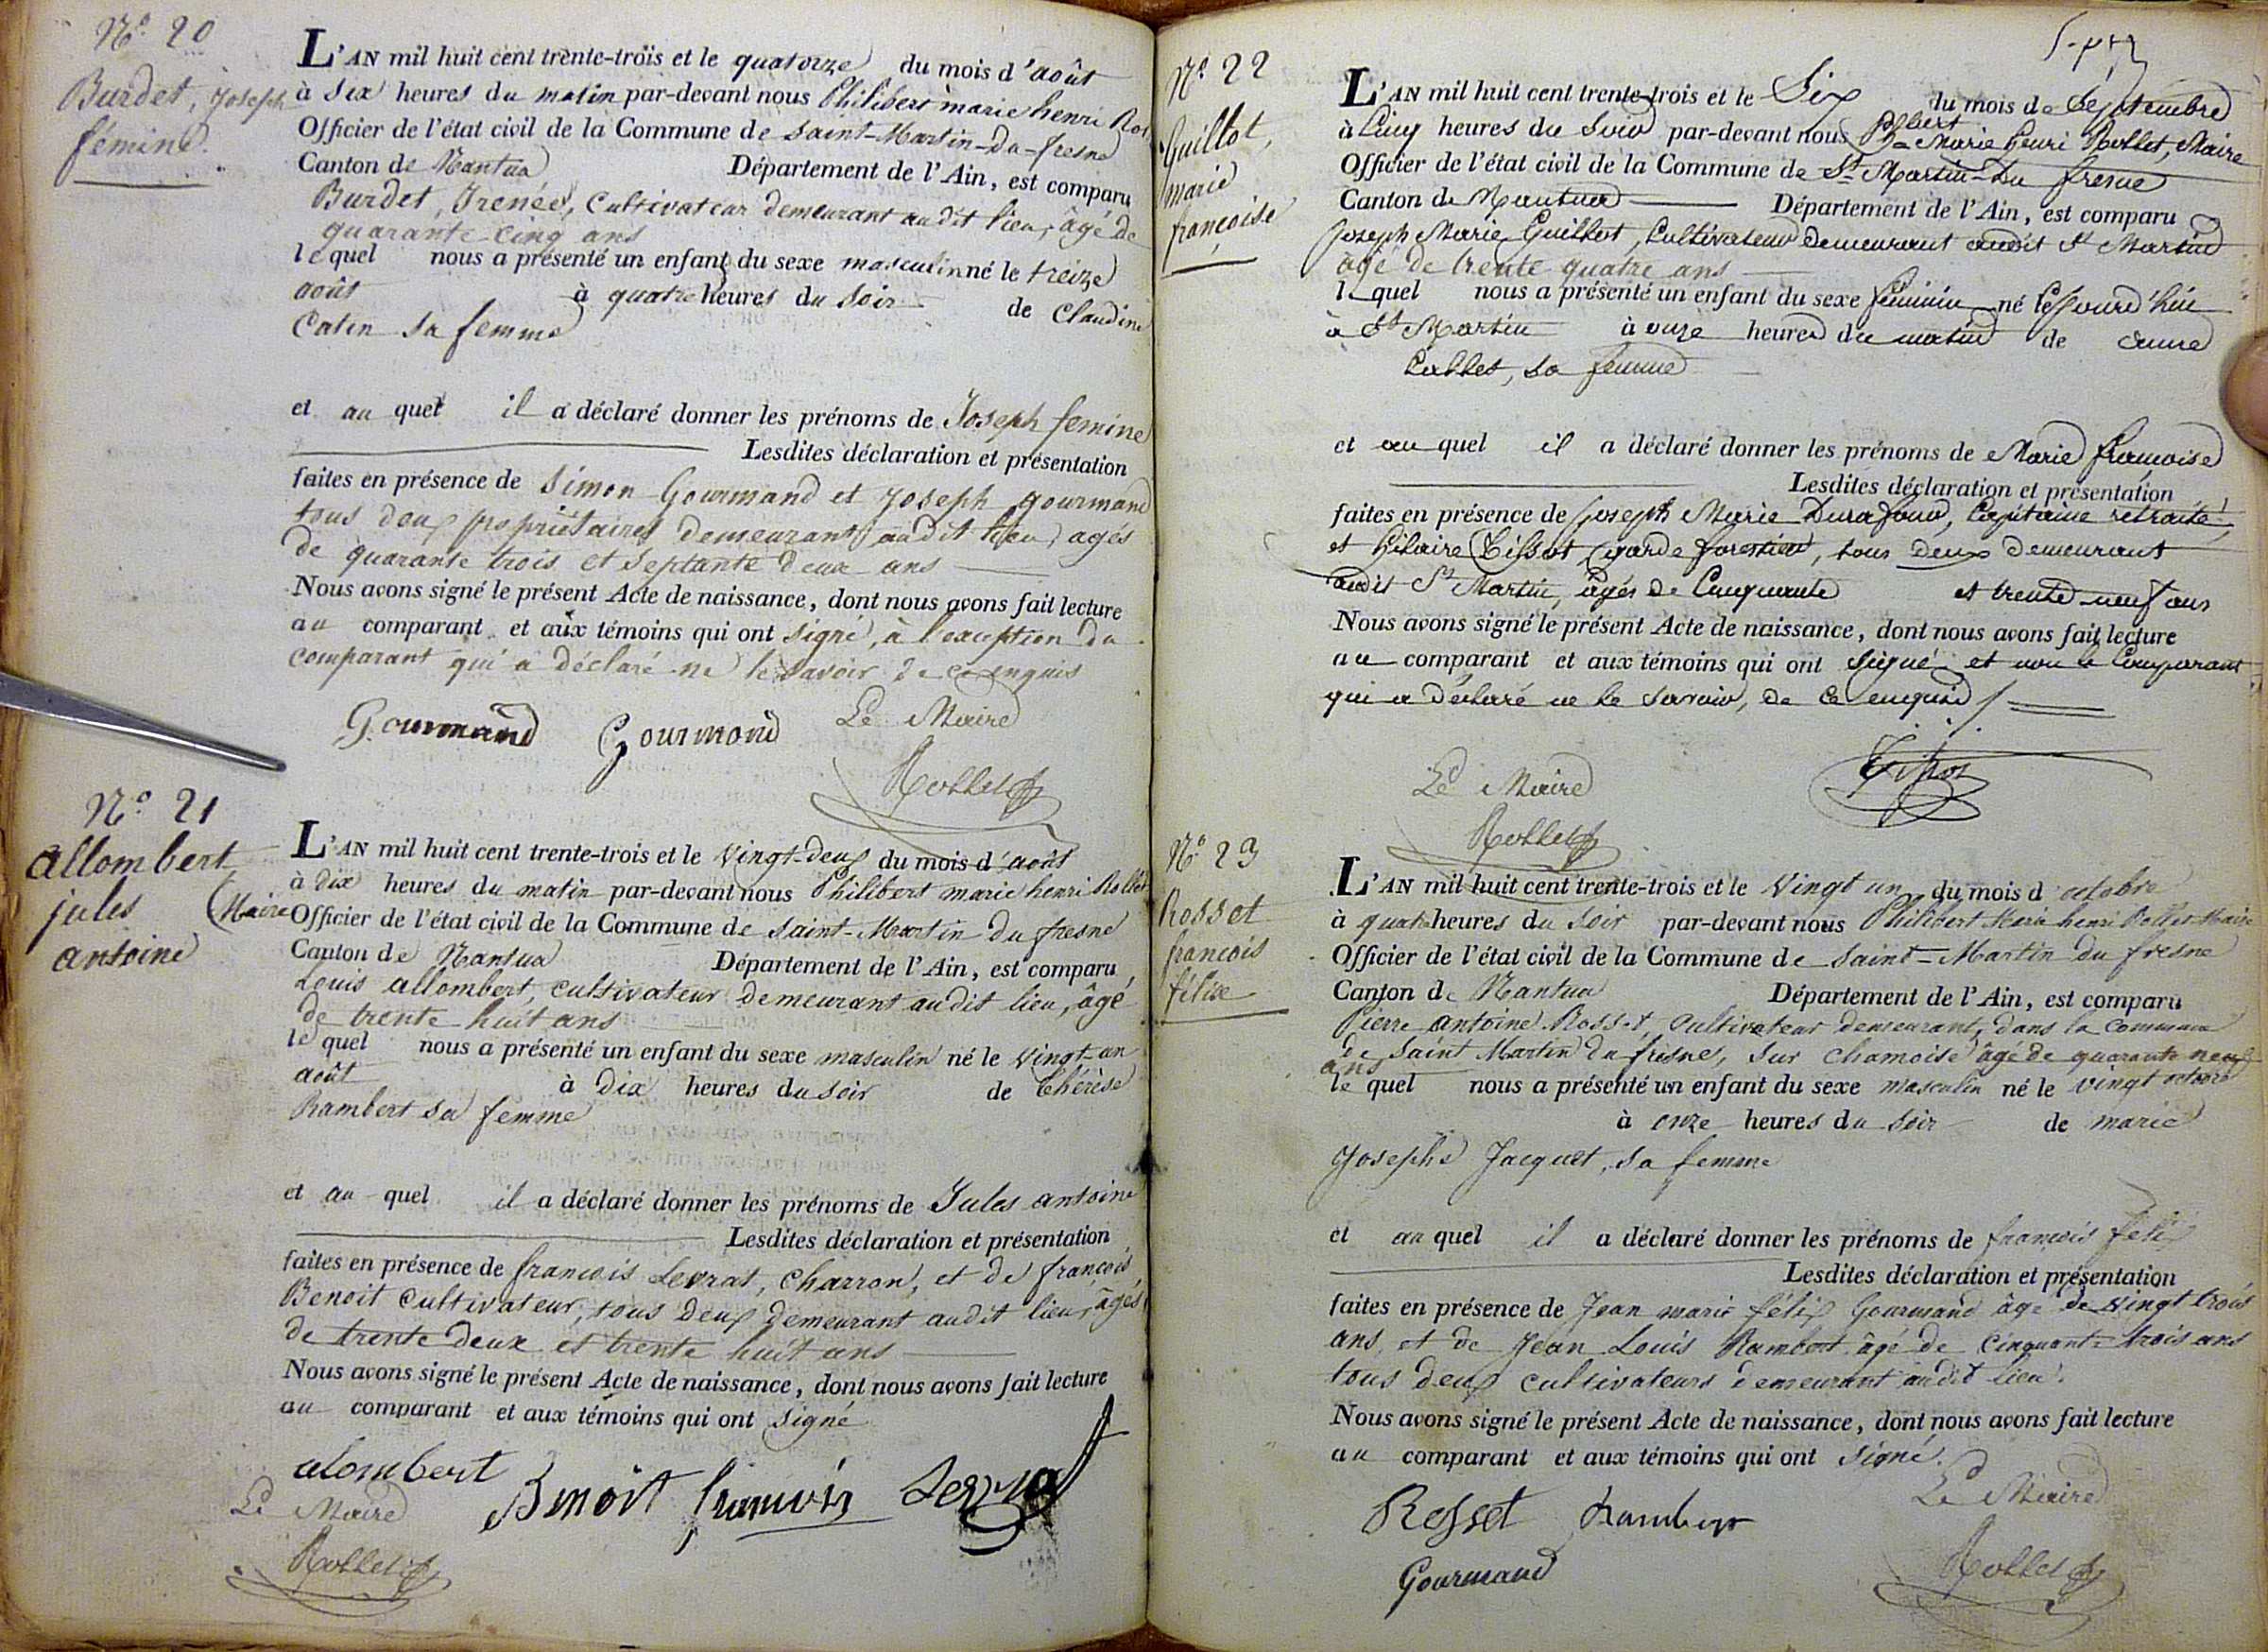 N.° 20
Burdet, Joseph
fémine.
L'AN mil huit cent trente-trois et le quatorze du mois d'août
à six heures du matin par-devant nous Philibert marie henri Rol
Officier de l'état civil de la Commune de saint-Martin-du-fresne
Canton de Nantua Département de l'Ain, est comparu
Burdet, Irenée, Cultivateur demeurant audit lieu, âgé de
quarante-cinq ans
lequel nous a présenté un enfant du sexe masculin né le treize
août à quatre heures du soir de Claudine
Catin sa femme
et au quel il a déclaré donner les prénoms de Joseph femine
Lesdites déclaration et présentation
faites en présence de Simon Gourmand et Joseph gourmand
tous deux propriétaires demeurant audit lieu, agés
de quarante trois et septante deux ans
Nous avons signé le présent Acte de naissance, dont nous avons fait lecture
au comparant et aux témoins qui ont signé, à l'exception du
comparant qui a déclaré ne le savoir de ce enquis
Gourmand Gourmand Le Maire
Rollet
N.° 21
allombert
jules
antoine
L'AN mil huit cent trente-trois et le vingt-deux du mois d'août
à dix heures du matin par-devant nous Philibert marie henri Rollet
(Maire Officier de l'état civil de la Commune de saint-Martin du fresne
Canton de Nantua Département de l'Ain, est comparu
Louis allombert, cultivateur demeurant audit lieu, âgé
de trente huit ans
lequel nous a présenté un enfant du sexe masculin né le vingt-un
août à dix heures du soir de Thérèse
Rambert sa femme
et au quel il a déclaré donner les prénoms de Jules antoine
Lesdites déclaration et présentation
faites en présence de francois Levrat, Charron, et de francois
Benoit cultivateur, tous deux demeurant audit lieu, âgés
de trente deux et trente huit ans
Nous avons signé le présent Acte de naissance, dont nous avons fait lecture
au comparant et aux témoins qui ont signé
alombert Benoit francois Levrat
Le Maire
Rollet
N.° 22
Guillot,
marie
françoise
L'AN mil huit cent trente-trois et le Six du mois de Septembre
à Cinq heures du Soir par-devant nous Phbert Marie henri Rollet, Maire
Officier de l'état civil de la Commune de St Martin-Du fresne
Canton de Nantua Département de l'Ain, est comparu
Joseph Marie Guillot, Cultivateur demeurant audit St Martin
âgé de trente quatre ans
lequel nous a présenté un enfant du sexe féminin né lejourd'hui
à St Martin à onze heures du matin de anne
Callet, sa femme
et au quel il a déclaré donner les prénoms de Marie françoise
Lesdites déclaration et présentation
faites en présence de Joseph Marie Durafour, Capitaine retraité,
et hilaire Tissot, garde forestier, tous deux demeurant
audit St Martin, âgés de Cinquante et trente-neuf ans
Nous avons signé le présent Acte de naissance, dont nous avons fait lecture
au comparant et aux témoins qui ont signé et non le Comparant
qui a déclaré ne le savoir, de ce enquis
Le Maire
Rollet
N.° 23
Rosset
francois
félise
L'AN mil huit cent trente-trois et le vingt un du mois d'octobre
à quatre heures du soir par-devant nous Philibert Marie henri Rollet Maire
Officier de l'état civil de la Commune de saint-Martin du fresne
Canton de Nantua Département de l'Ain, est comparu
Pierre antoine Rosset, Cultivateur demeurant, dans la commune
de saint Martin du fresne, sur chamoise âgé de quarante neuf
ans
lequel nous a présenté un enfant du sexe masculin né le vingt octobre
à onze heures du soir de marie
Josephe Jacquet, sa femme
et au quel il a déclaré donner les prénoms de francois félix
Lesdites déclaration et présentation
faites en présence de Jean marie félix Gourmand âgé de vingt trois
ans, et de Jean Louis Rambert âgé de cinquante-trois ans
tous deux cultivateurs demeurant audit lieu.
Nous avons signé le présent Acte de naissance, dont nous avons fait lecture
au comparant et aux témoins qui ont signé.
Rosset Rambert Le Maire
Gourmand Rollet